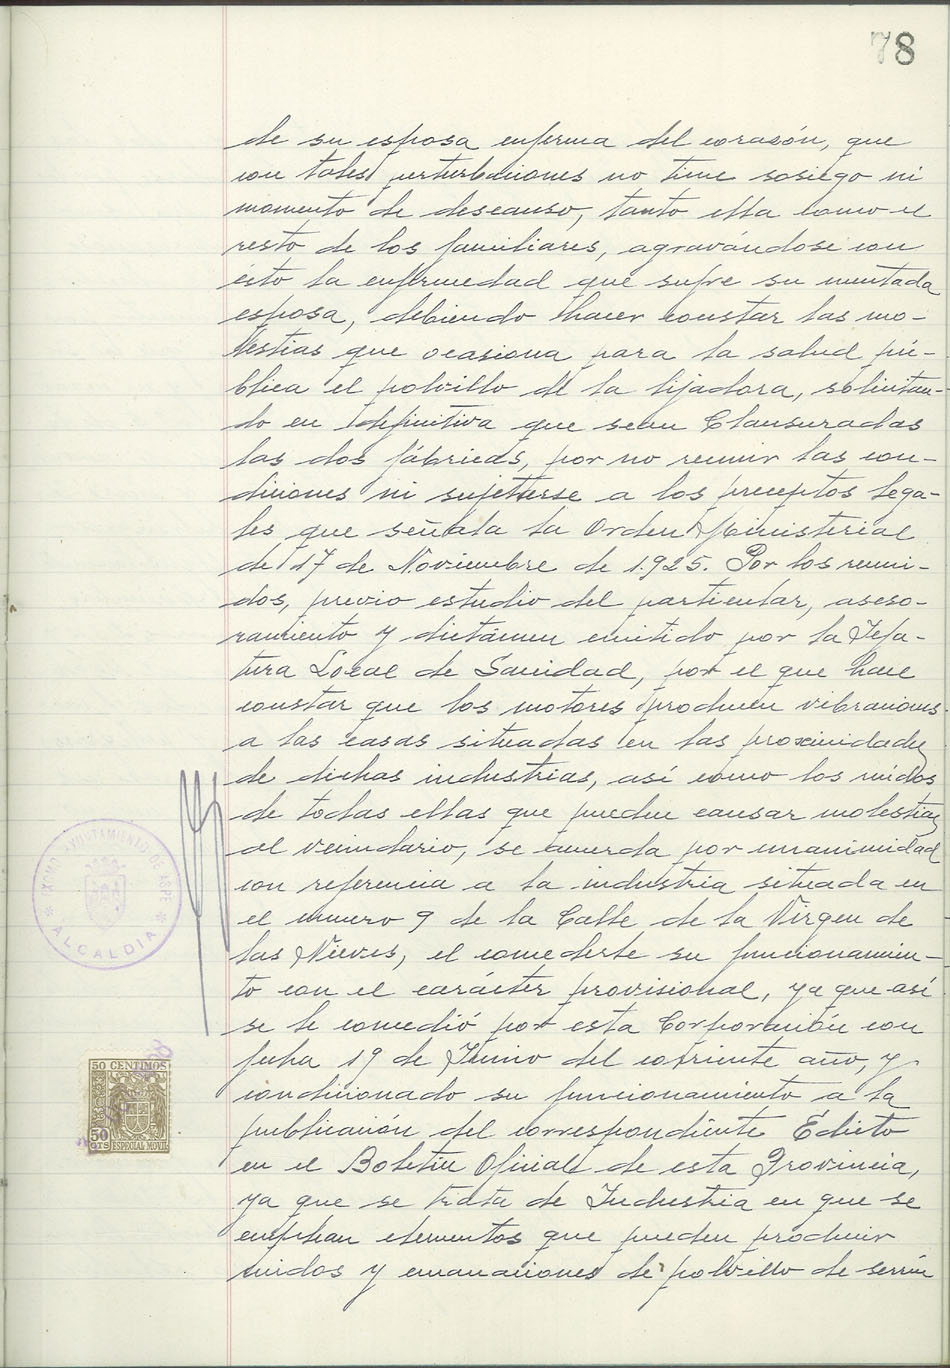 78
de su esposa enferma del corazón, que
con tales perturbaciones no tiene sosiego ni
momento de descanso, tanto ella como el
resto de los familiares, agravándose con
ésto la enfermedad que sufre su mentada
esposa, debiendo hacer constar las mo-
lestias que ocasiona para la salud pú-
blica el polvillo de la lijadora, solicitan-
do en definitiva que sean Clausuradas
las dos fábricas, por no reunir las con-
diciones ni sujetarse a los preceptos lega-
les que señala la Orden Ministerial
de 17 de Noviembre de 1.925. Por los reuni-
dos, previo estudio del particular, aseso-
ramiento y dictámen emitido por la Jefa-
tura Local de Sanidad, por el que hace
constar que los motores producen vibraciones
a las casas situadas en las proximidades
de dichas industrias, así como los ruidos
de todas ellas que pueden causar molestias
al vecindario, se acuerda por unanimidad
con referencia a la industria situada en
el número 9 de la Calle de la Virgen de
las Nieves, el concederle su funcionamien-
to con el carácter provisional, ya que así
se le concedió por esta Corporación con
fecha 19 de Junio del corriente año, y
condicionado su funcionamiento a la
publicación del correspondiente Edicto
en el Boletín Oficial de esta Provincia,
ya que se trata de Industria en que se
emplean elementos que pueden producir
ruidos y emanaciones de polvillo de serrín
EXCMO. AYUNTAMIENTO DE ASPE
* ALCALDIA *
50 CENTIMOS
50
CTS
ESPECIAL MOVIL